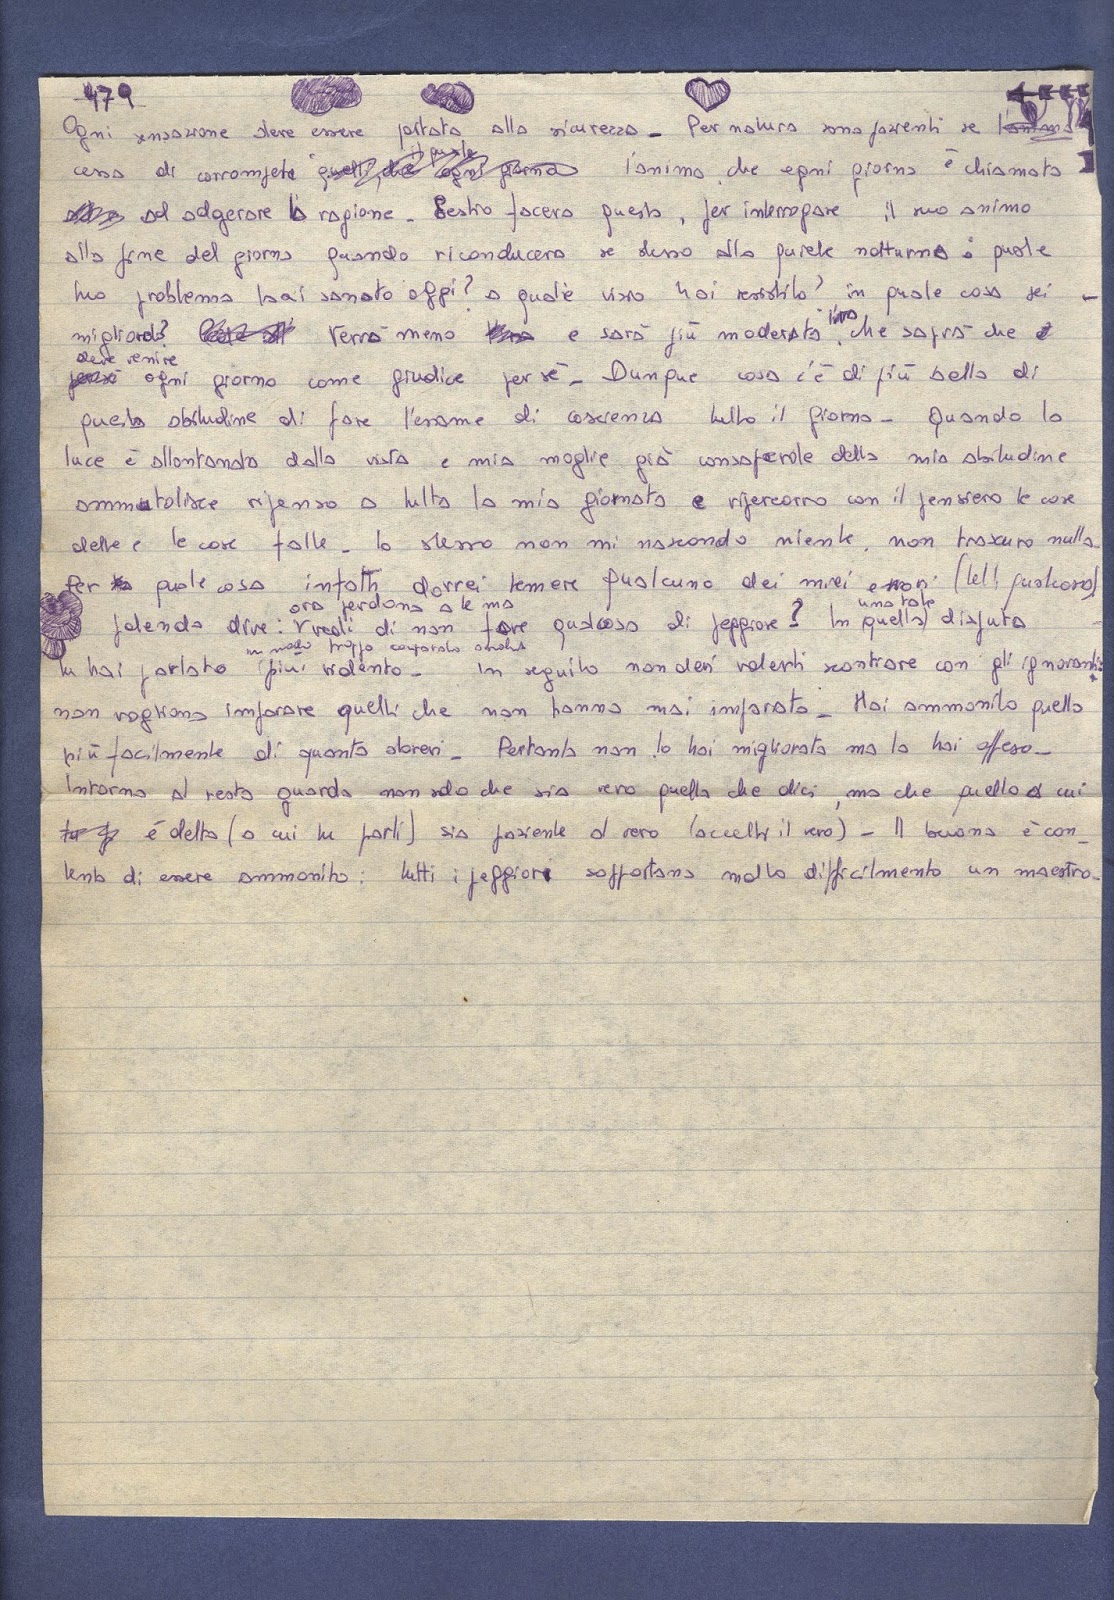 479
Ogni sensazione deve essere portata alla sicurezza - Per natura sono pazienti se l'animo
cessa di corrompere il quale l'animo, che ogni giorno è chiamato
ad adgerare la ragione - Sestio faceva questo, per interrogare il suo animo
alla fine del giorno quando riconduceva se stesso alla quiete notturna: quale
tuo problema hai sanato oggi? a quale vizio hai resistito? in quale cosa sei
migliorato? Verrà meno e sarà più moderata l'ira che saprà che
deve venire
ogni giorno come giudice per sè - Dunque cosa c'è di più bello di
questa abitudine di fare l'esame di coscienza tutto il giorno - Quando la
luce è allontanata dalla vista e mia moglie già consapevole della mia abitudine
ammutolisce ripenso a tutta la mia giornata e ripercorro con il pensiero le cose
dette e le cose fatte - Io stesso non mi nascondo niente, non trascuro nulla
Per quale cosa infatti dovrei temere qualcuno dei miei errori (lett. qualcosa)
ora perdono a te ma
potendo dire: Vedi di non fare qualcosa di peggiore? In quella disputa
una tale
in modo troppo
tu hai parlato (più) violento - In seguito non devi volerti scontrare con gli ignoranti:
non vogliono imparare quelli che non hanno mai imparato - Hai ammonito quello
più facilmente di quanto dovevi - Pertanto non lo hai migliorato ma lo hai offeso -
Intorno al resto guarda non solo che sia vero quello che dici, ma che quello a cui
è detto (a cui tu parli) sia paziente al vero (accetti il vero) - Il buono è con-
tento di essere ammonito: tutti i peggiori sopportano molto difficilmente un maestro -